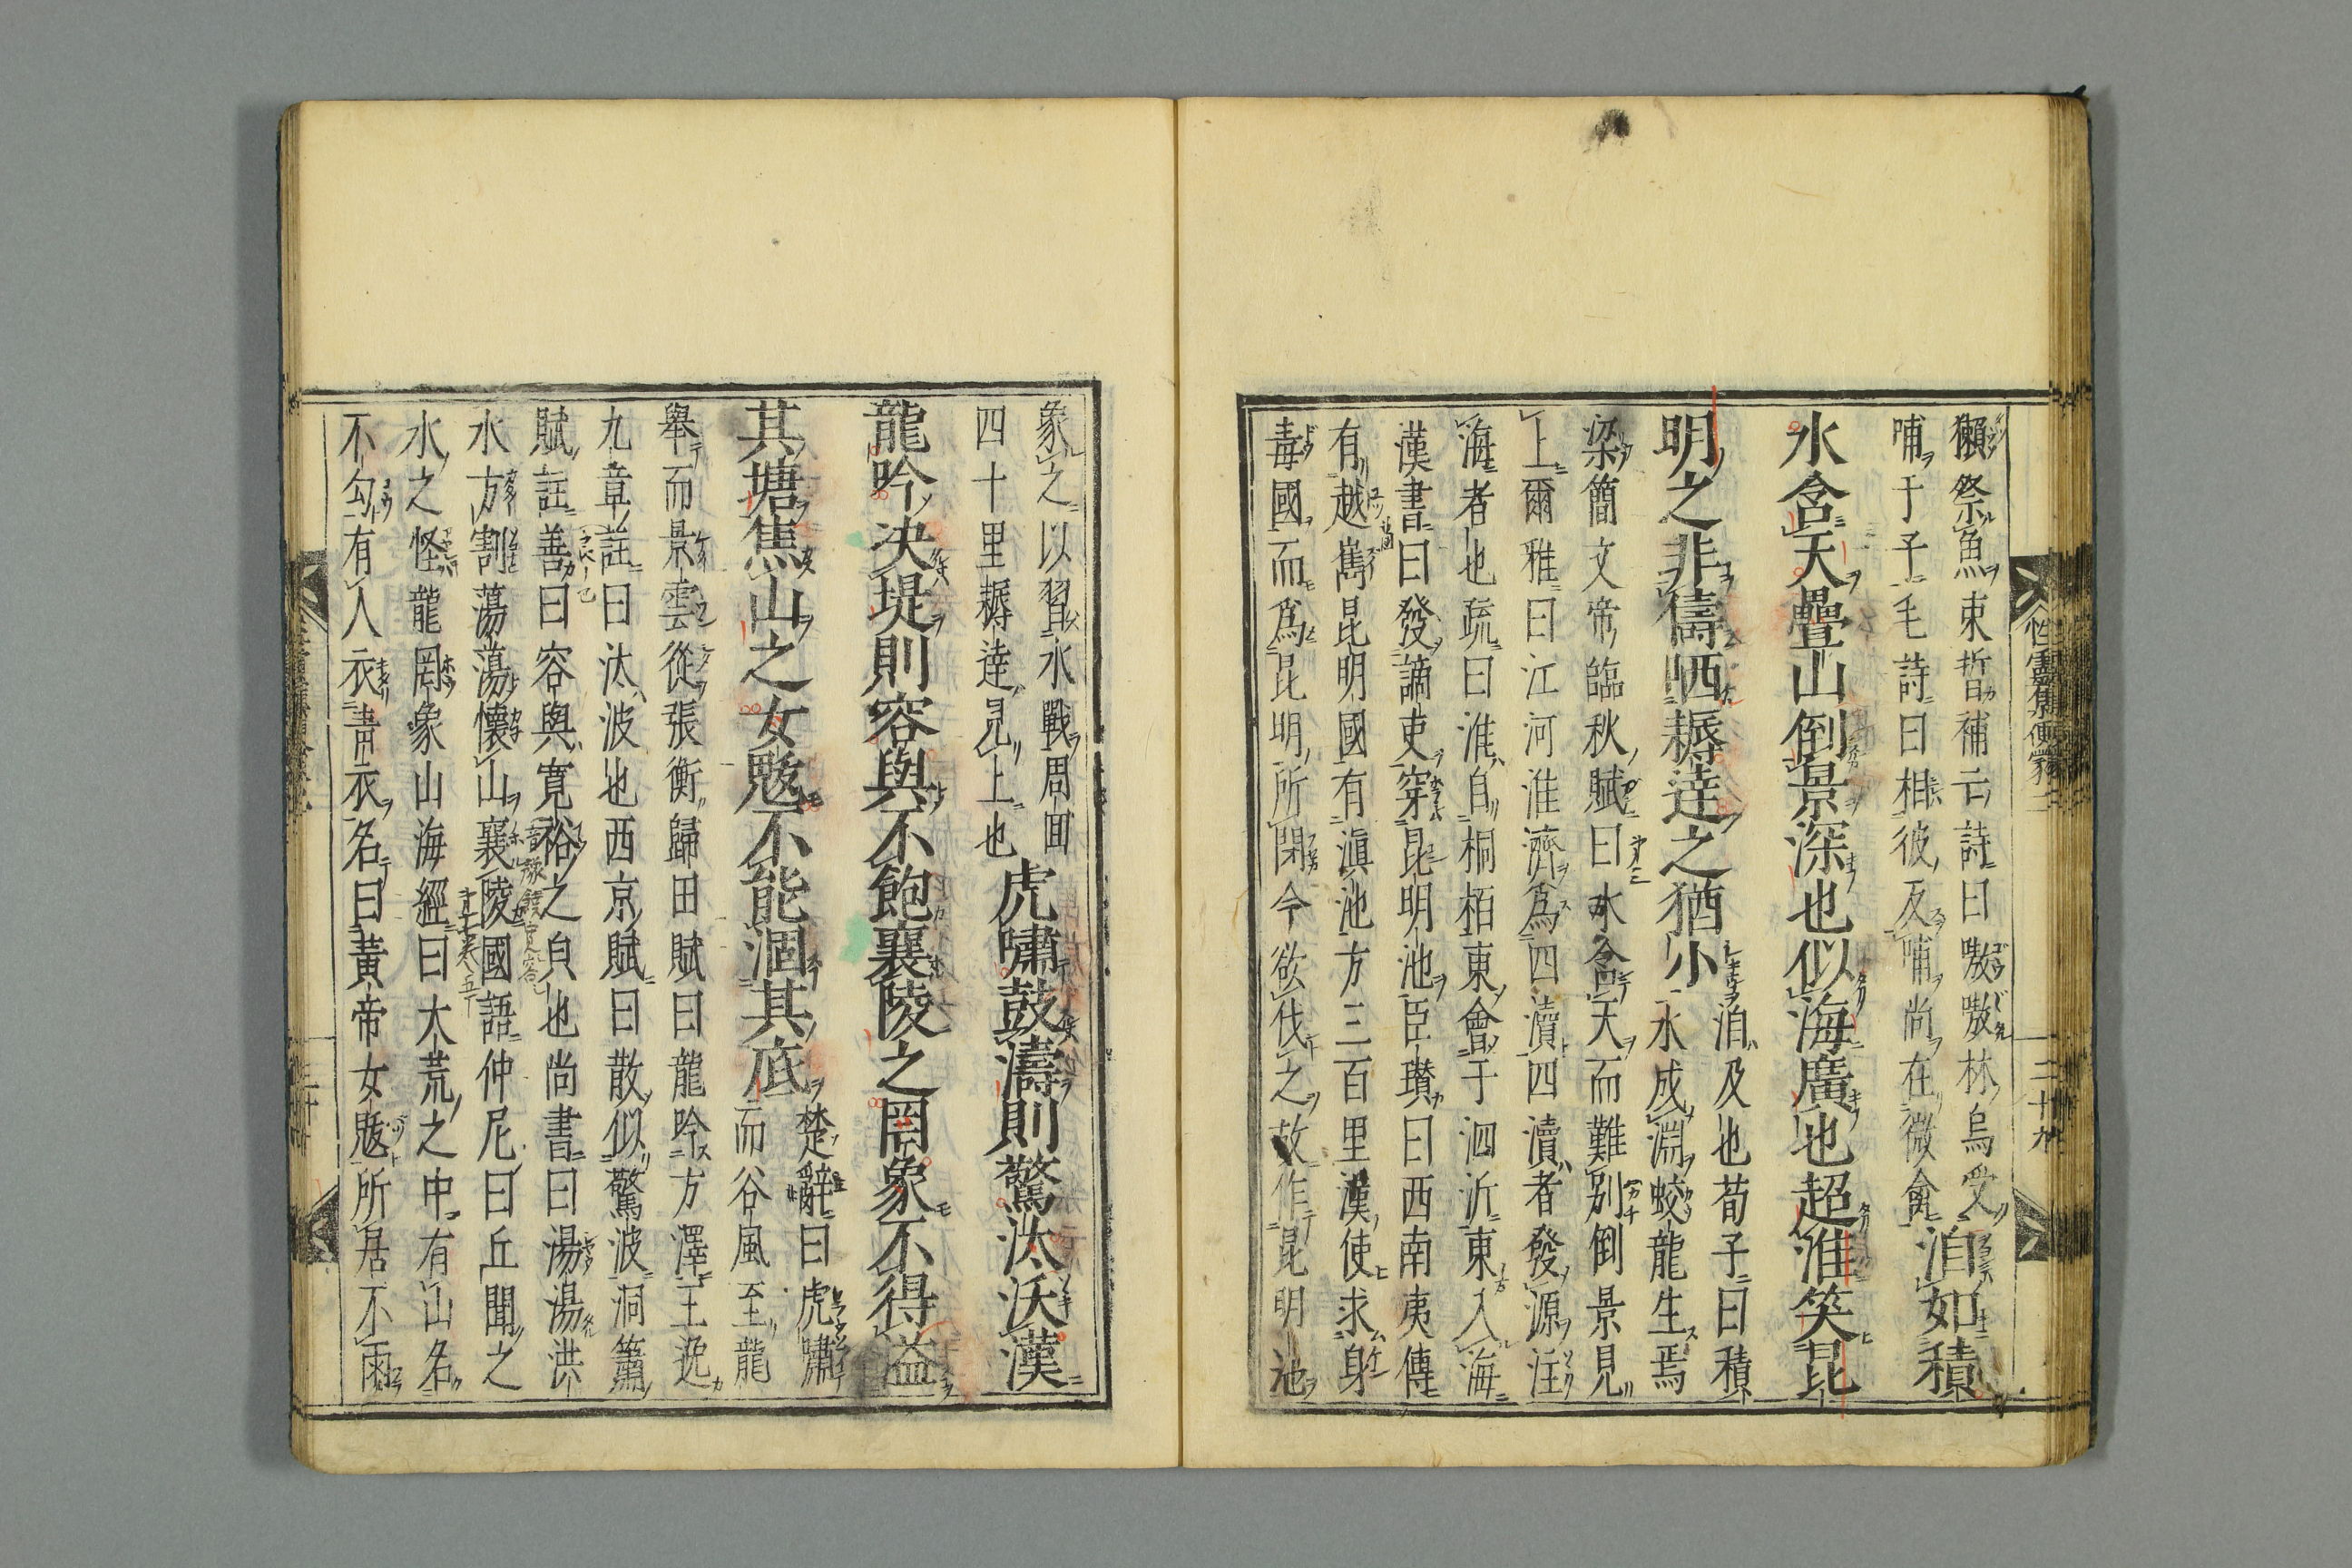 獺祭魚束晳補亡詩曰嗷嗷林烏受
哺于子毛詩曰相彼反哺尚在微禽
洎如積
水含天疊山倒景深也似海廣也超淮笑昆
明之非儔哂耨達之猶小
洎及也荀子曰積
水成淵蛟龍生焉
梁簡文帝臨秋賦曰水含天而難別倒景見
上爾雅曰江河淮濟爲四瀆四瀆者發源注
海者也疏曰淮自桐柏東會于泗沂東入海
漢書曰發謫吏穿昆明池臣瓚曰西南夷傳
有越嶲昆明國有滇池方三百里漢使求身
毒國而爲昆明所閉今欲伐之故作昆明池
性靈集便蒙二
二十九
象之以習水戰周回
四十里耨達見上也
虎嘯鼓濤則驚汰沃漢
龍吟決堤則容與不飽襄陵之罔象不得溢
其塘焦山之女魃不能涸其底
楚辭曰虎嘯
而谷風至龍
舉而景雲從張衡歸田賦曰龍吟方澤王逸
九章註曰汰波也西京賦曰散似驚波洞簫
賦註善曰容與寬裕之㒵也尚書曰湯湯洪
水方割蕩蕩懷山襄陵國語仲尼曰丘聞之
水之怪龍罔象山海經曰大荒之中有山名
不勾有人衣青衣名曰黃帝女魃所居不雨